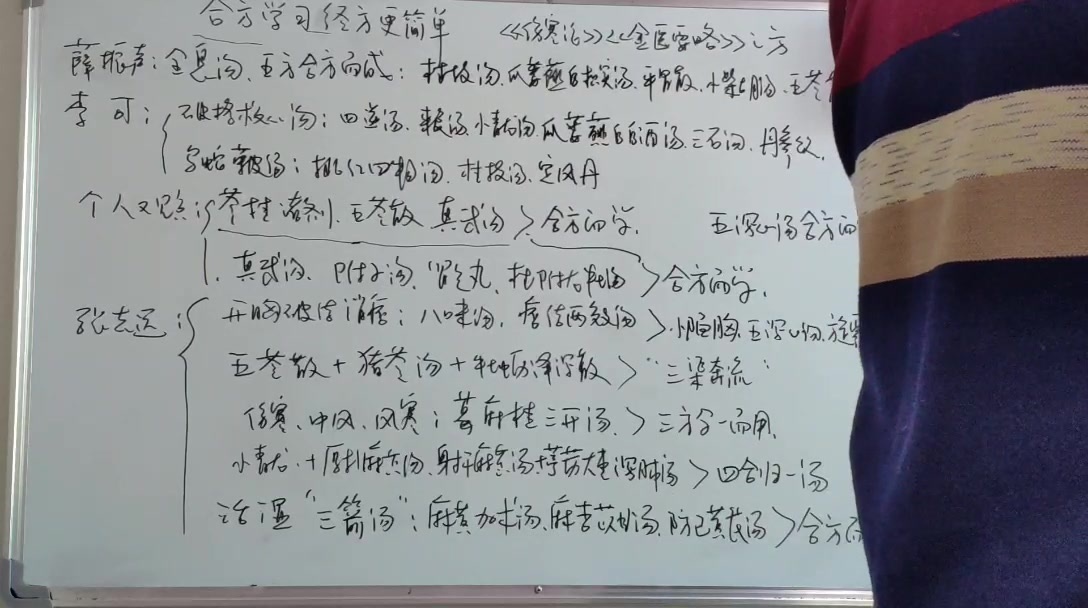 合方学习经方更简单 《伤寒论》《金匮要略》之方
薛振声：全息汤，五方合方而成：桂枝汤、瓜蒌薤白桂枝汤、平胃散、小柴胡汤、五苓
李可：破格救心汤：四逆汤、
乌蛇荣皮汤：桃仁四物汤、桂枝汤、定风丹
个人观点：苓桂诸剂、五苓散、真武汤＞合方而学， 五泻心汤合方而
真武汤、附子汤、肾气丸、＞合方而学，
张志远：开胸破结消痞：八味汤、痞结两效汤＞小陷胸、五泻心汤、旋
五苓散＋猪苓汤＋牡蛎泽泻散＞“三渠奔流”
伤寒、中风、风寒：葛麻桂三开汤、＞三方合一而用，
小青龙＋厚朴麻黄汤、射干麻黄汤＋葶苈大枣泻肺汤＞四合归一汤
治湿“三箭汤”：麻黄加术汤、麻杏苡甘汤、防己黄芪汤＞合方而